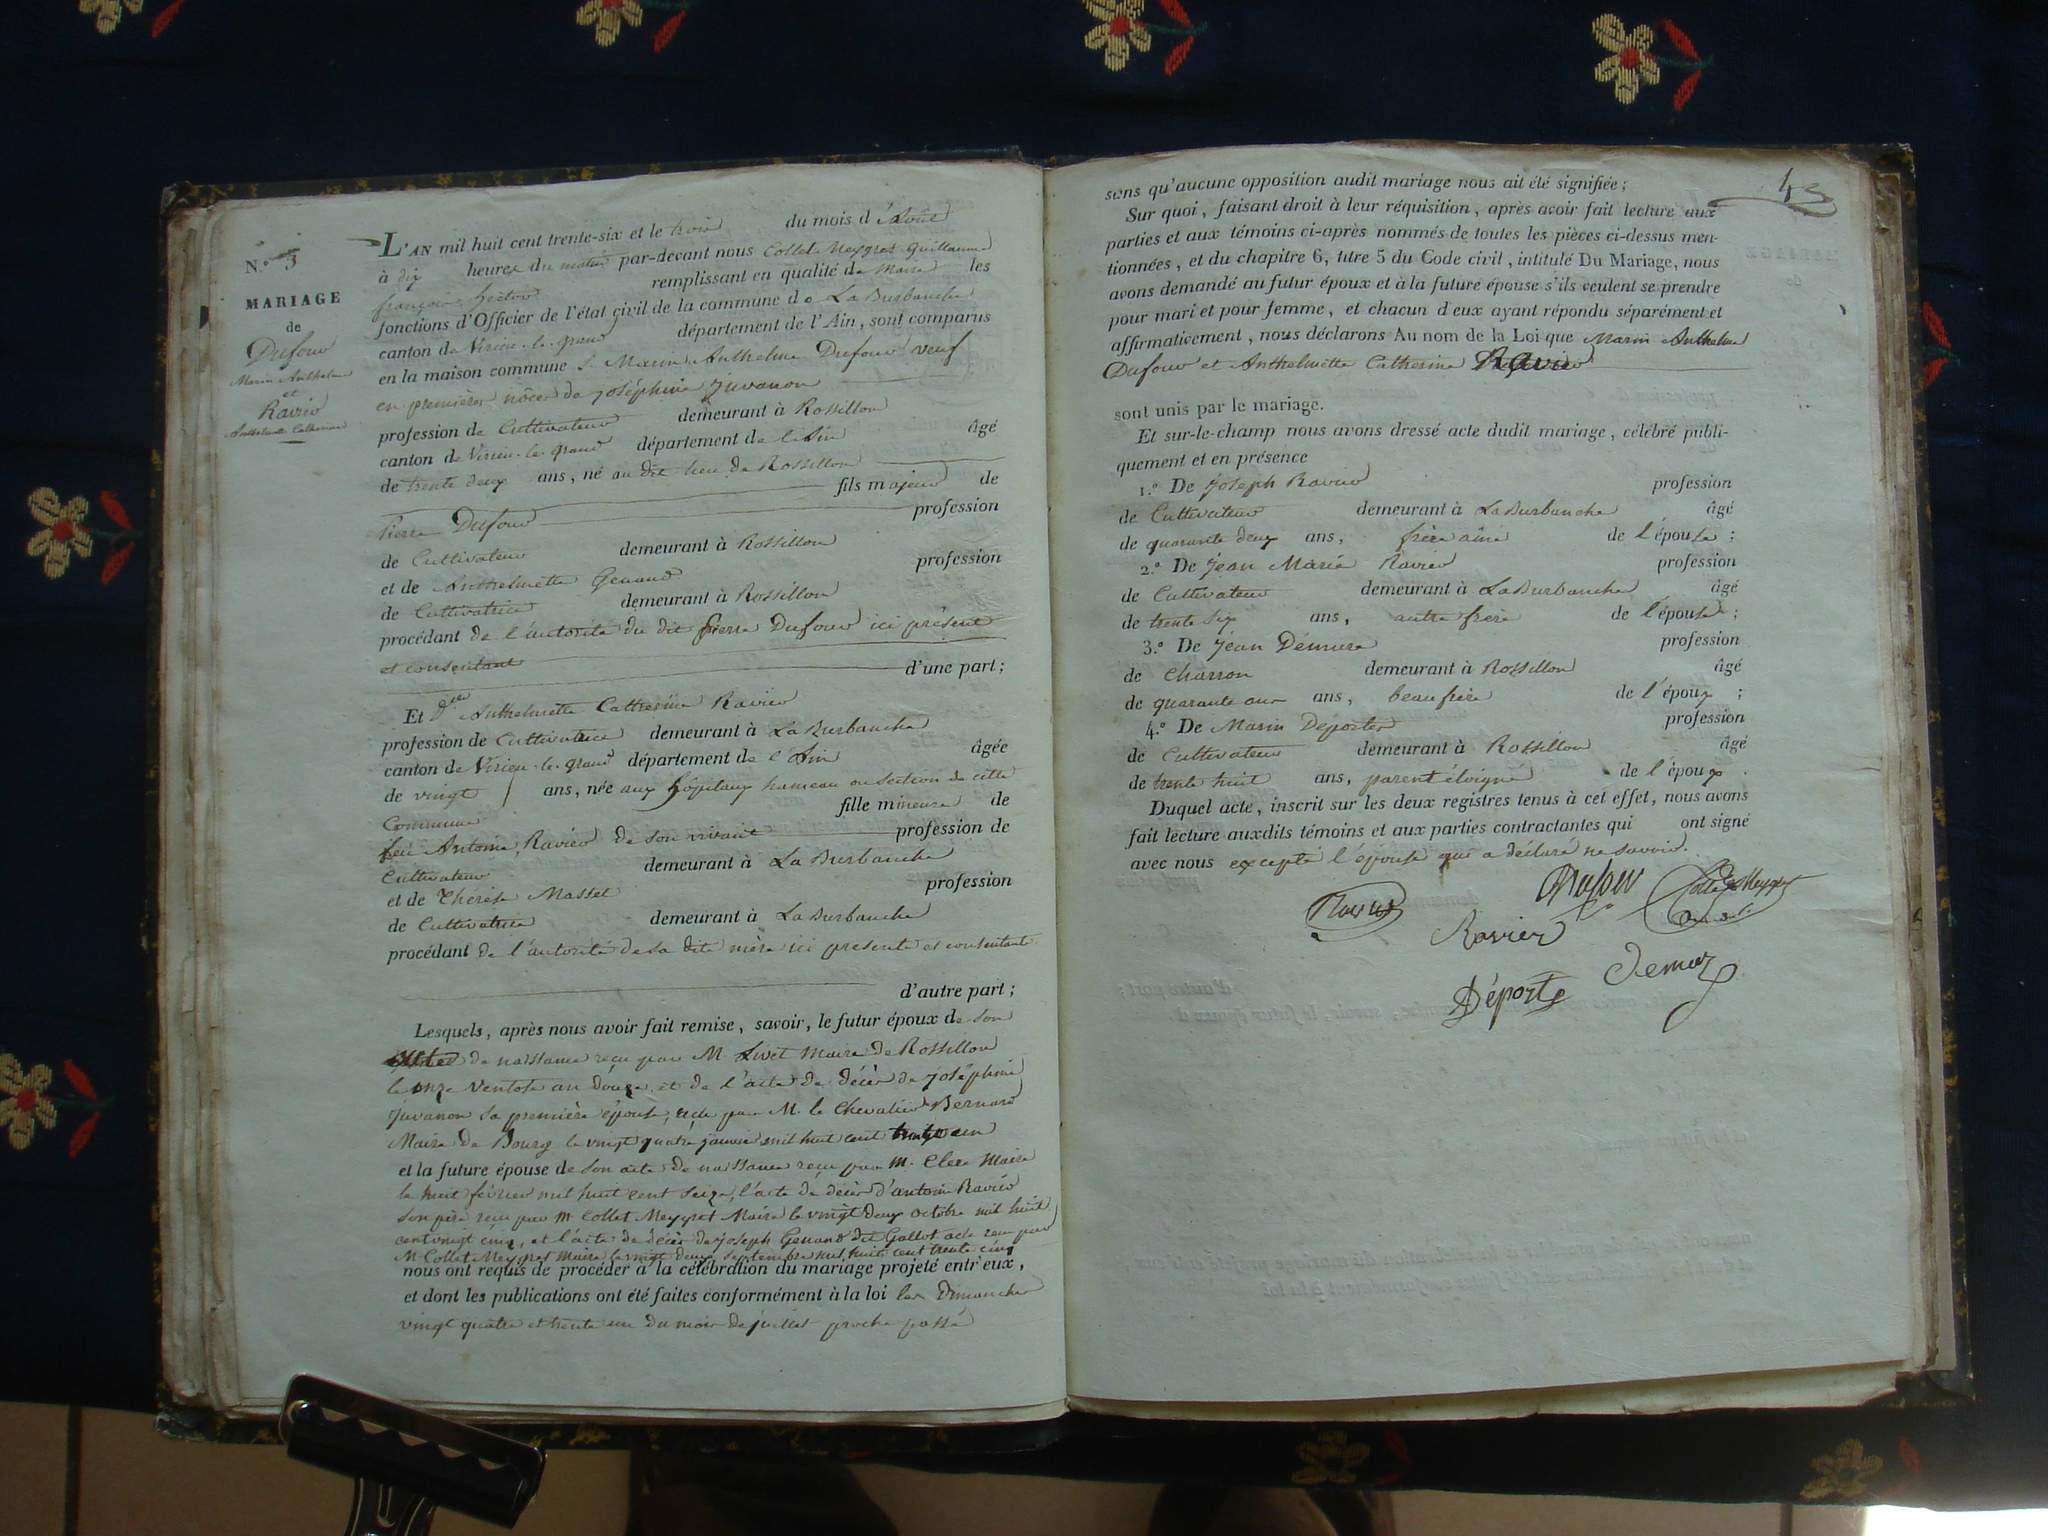 N.o 3
MARIAGE
de
Dufour
Marin Anthelme
et
Ravier
Anthelmette Catherine
L'AN mil huit cent trente-six et le trois du mois d'Août
à dix heures du matin par-devant nous Collet Meygret Guillaume
françois hector remplissant en qualité de Maire les
fonctions d'Officier de l'état civil de la commune de La Burbanche
canton de Virieu-le-grand département de l'Ain, sont comparus
en la maison commune S. Marin Anthelme Dufour veuf
en premières nôces de joséphine juvanon
profession de Cultivateur demeurant à Rossillon
canton de Virieu-le-grand département de l'Ain âgé
de trente deux ans, né au dit lieu de Rossillon
fils majeur de
Pierre Dufour profession
de Cultivateur demeurant à Rossillon
et de Anthelmette Genand profession
de Cultivatrice demeurant à Rossillon
procédant de l'autorité du dit pierre Dufour ici présent
et consentant d'une part;
Et Dlle Anthelmette Catherine Ravier
profession de Cultivatrice demeurant à La Burbanche
canton de Virieu-le-grand département de l'Ain âgée
de vingt ans, née aux hôpitaux hameau ou section de cette
Commune fille mineure de
feu Antoine Ravier de son vivant profession de
Cultivateur demeurant à La Burbanche
et de Thérèse Masset profession
de Cultivatrice demeurant à La Burbanche
procédant de l'autorité de sa dite mère ici présente et consentante
d'autre part;
Lesquels, après nous avoir fait remise, savoir, le futur époux de son
de naissance reçu par M. Livet Maire de Rossillon
le onze Ventose an douze, et de l'acte de décès de joséphine
juvanon sa première épouse, reçu par M. le Chevalier Bernard
Maire de Bourg le vingt quatre janvier mil huit cent trente un
et la future épouse de son acte de naissance reçu par M. Clerc Maire
le huit février mil huit cent seize, l'acte de décès d'antoine Ravier
son père reçu par M. Collet Meygret Maire le vingt deux octobre mil huit
cent vingt cinq, et l'acte de décès de joseph Genand dit Gallot acte reçu par
M. Collet Meygret Maire le vingt deux septembre mil huit cent trente cinq
nous ont requis de procéder à la célébration du mariage projeté entr'eux,
et dont les publications ont été faites conformément à la loi les Dimanches
vingt quatre et trente un du mois de juillet proche passé
43
sans qu'aucune opposition audit mariage nous ait été signifiée;
Sur quoi, faisant droit à leur réquisition, après avoir fait lecture aux
parties et aux témoins ci-après nommés de toutes les pièces ci-dessus men-
tionnées, et du chapitre 6, titre 5 du Code civil, intitulé Du Mariage, nous
avons demandé au futur époux et à la future épouse s'ils veulent se prendre
pour mari et pour femme, et chacun d'eux ayant répondu séparément et
affirmativement, nous déclarons Au nom de la Loi que Marin Anthelme
Dufour et Anthelmette Catherine Ravier
sont unis par le mariage.
Et sur-le-champ nous avons dressé acte dudit mariage, célébré publi-
quement et en présence
1.o De Joseph Ravier profession
de Cultivateur demeurant à La Burbanche âgé
de quarante deux ans, frère aîné de l'épouse;
2.o De Jean Marie Ravier profession
de Cultivateur demeurant à La Burbanche âgé
de trente six ans, autre frère de l'épouse;
3.o De Jean Démure profession
de Charron demeurant à Rossillon âgé
de quarante ans, beau frère de l'époux;
4.o De Marin Deportes profession
de Cultivateur demeurant à Rossillon âgé
de trente huit ans, parent éloigné de l'époux.
Duquel acte, inscrit sur les deux registres tenus à cet effet, nous avons
fait lecture auxdits témoins et aux parties contractantes qui ont signé
avec nous excepté l'épouse qui a déclaré ne savoir.
Dufour Collet Meygret
Ravier
Ravier
Déporte Demur